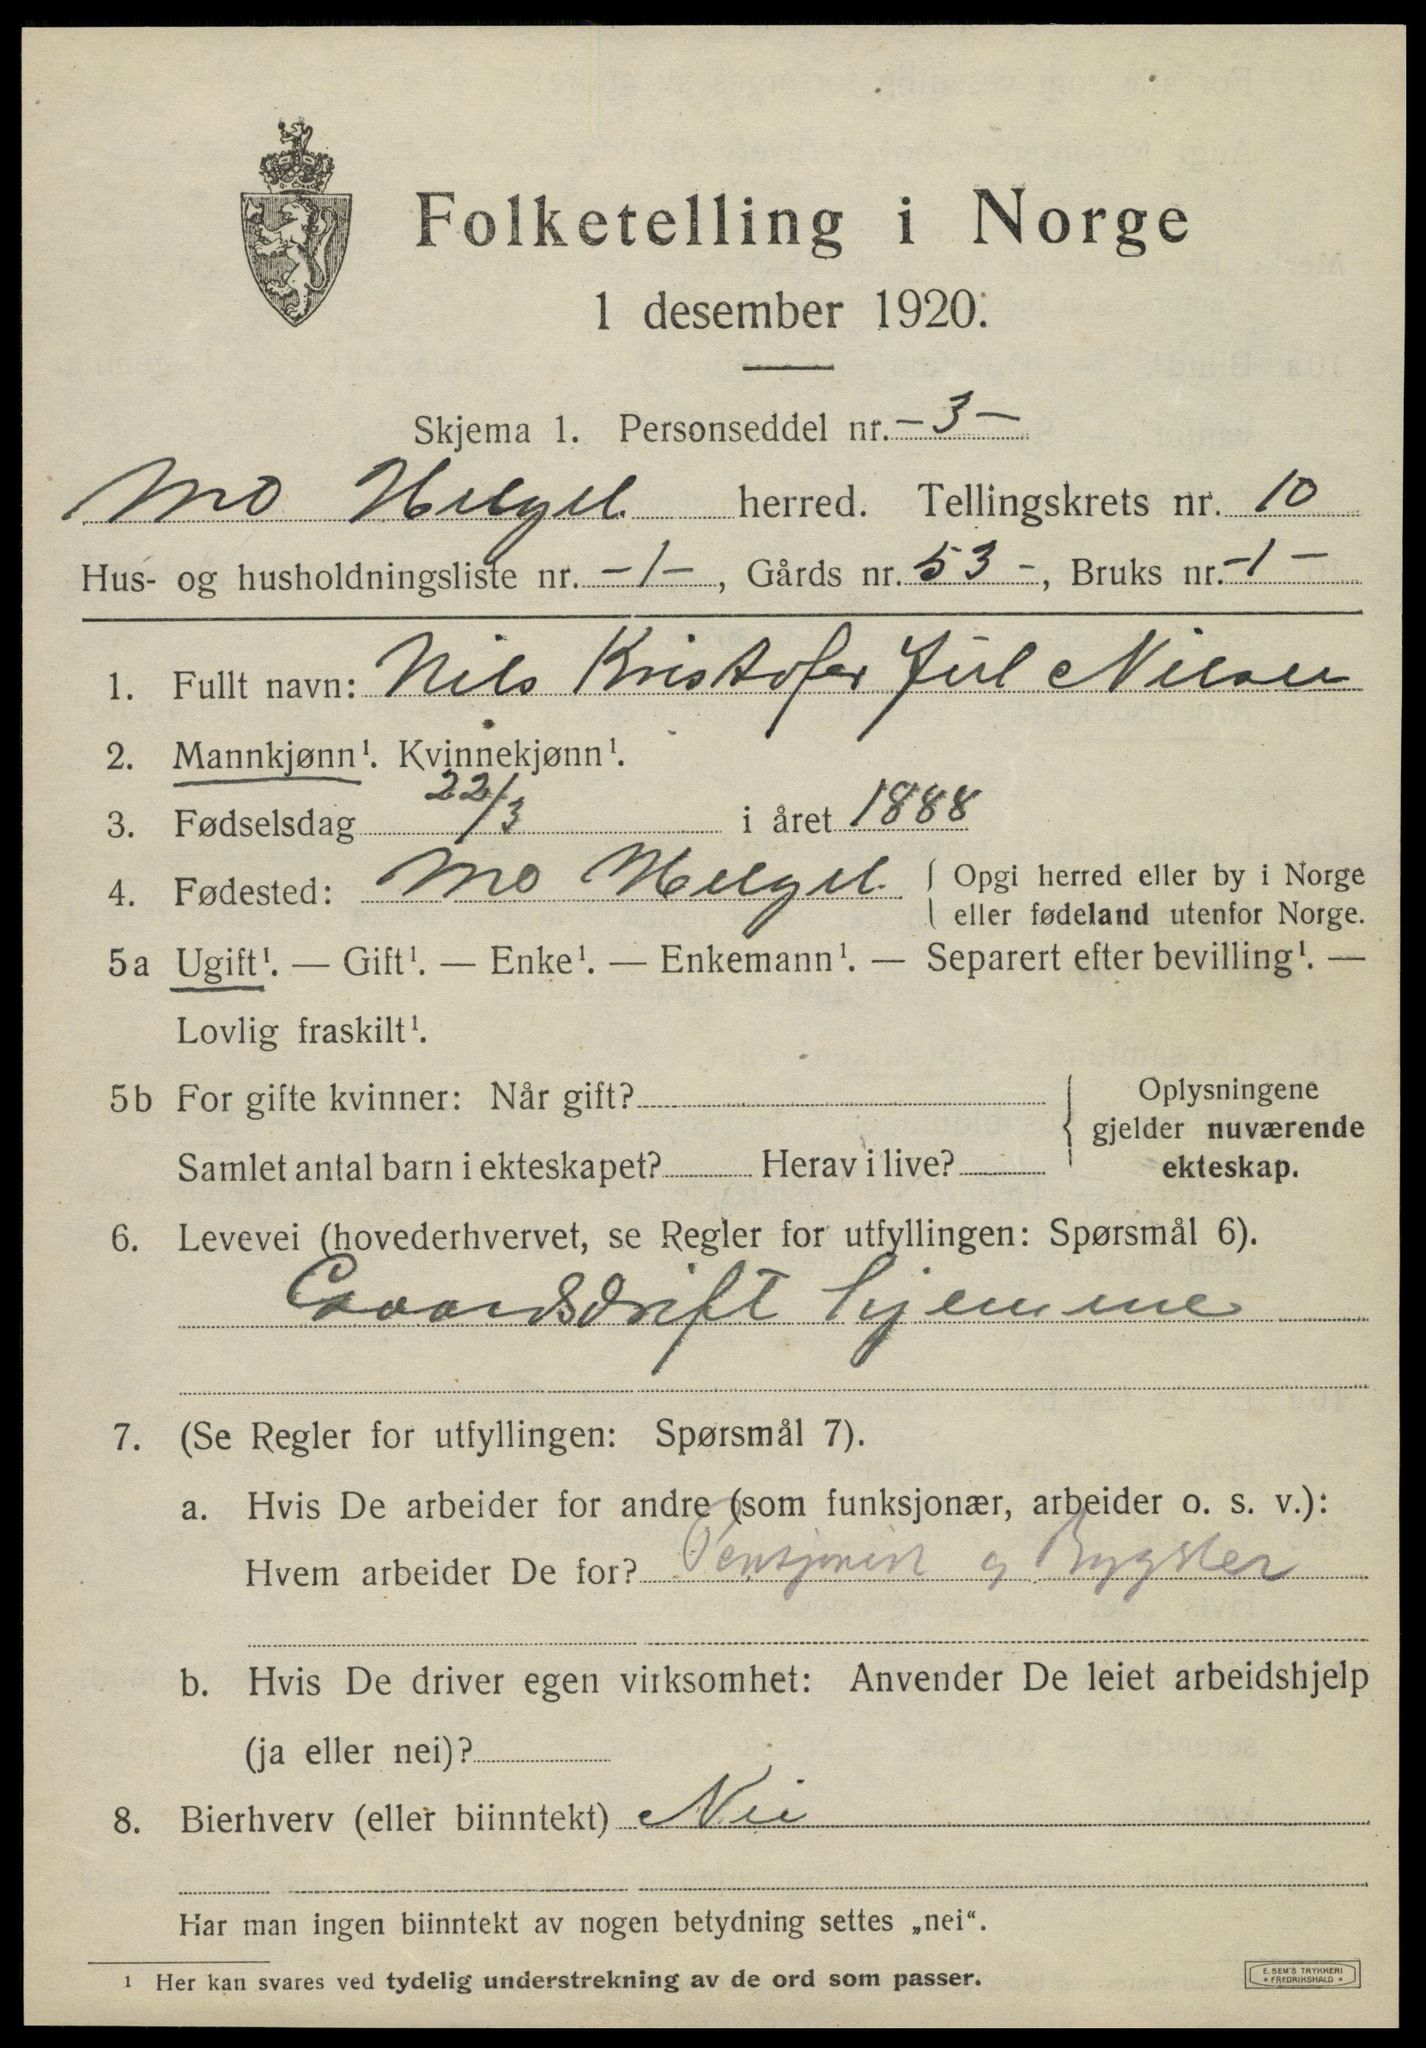 Folketelling i Norge
1 desember 1920.
Skjema 1. Personseddel nr. -3-
Mo Helgel. herred. Tellingskrets nr. 10
Hus- og husholdningsliste nr. -1-, Gårds nr. 53-, Bruks nr. -1-
1. Fullt navn: Nils Kristofer Juul Nilsen
2. Mannkjønn¹. Kvinnekjønn¹.
3. Fødselsdag 22/3 i året 1888
4. Fødested: Mo Helgel. { Opgi herred eller by i Norge
eller fødeland utenfor Norge.
5a Ugift¹. — Gift¹. — Enke¹. — Enkemann¹. — Separert efter bevilling¹. —
Lovlig fraskilt¹.
5b For gifte kvinner: Når gift?
Samlet antal barn i ekteskapet? Herav i live?
{ Oplysningene
gjelder nuværende
ekteskap.
6. Levevei (hovederhvervet, se Regler for utfyllingen: Spørsmål 6).
Gaardsdrift hjemme
7. (Se Regler for utfyllingen: Spørsmål 7).
a. Hvis De arbeider for andre (som funksjonær, arbeider o. s. v.):
Hvem arbeider De for? Pensjonist og Bygsler
b. Hvis De driver egen virksomhet: Anvender De leiet arbeidshjelp
(ja eller nei)?
8. Bierhverv (eller biinntekt) Nei
Har man ingen biinntekt av nogen betydning settes „nei“.
¹ Her kan svares ved tydelig understrekning av de ord som passer.
E. SEM'S TRYKKERI
* FREDRIKSHALD *